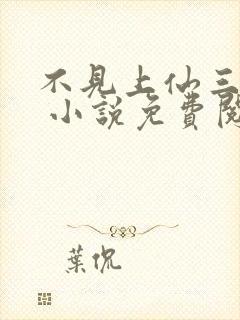 不見上仙三
小說免費閱
葉侃